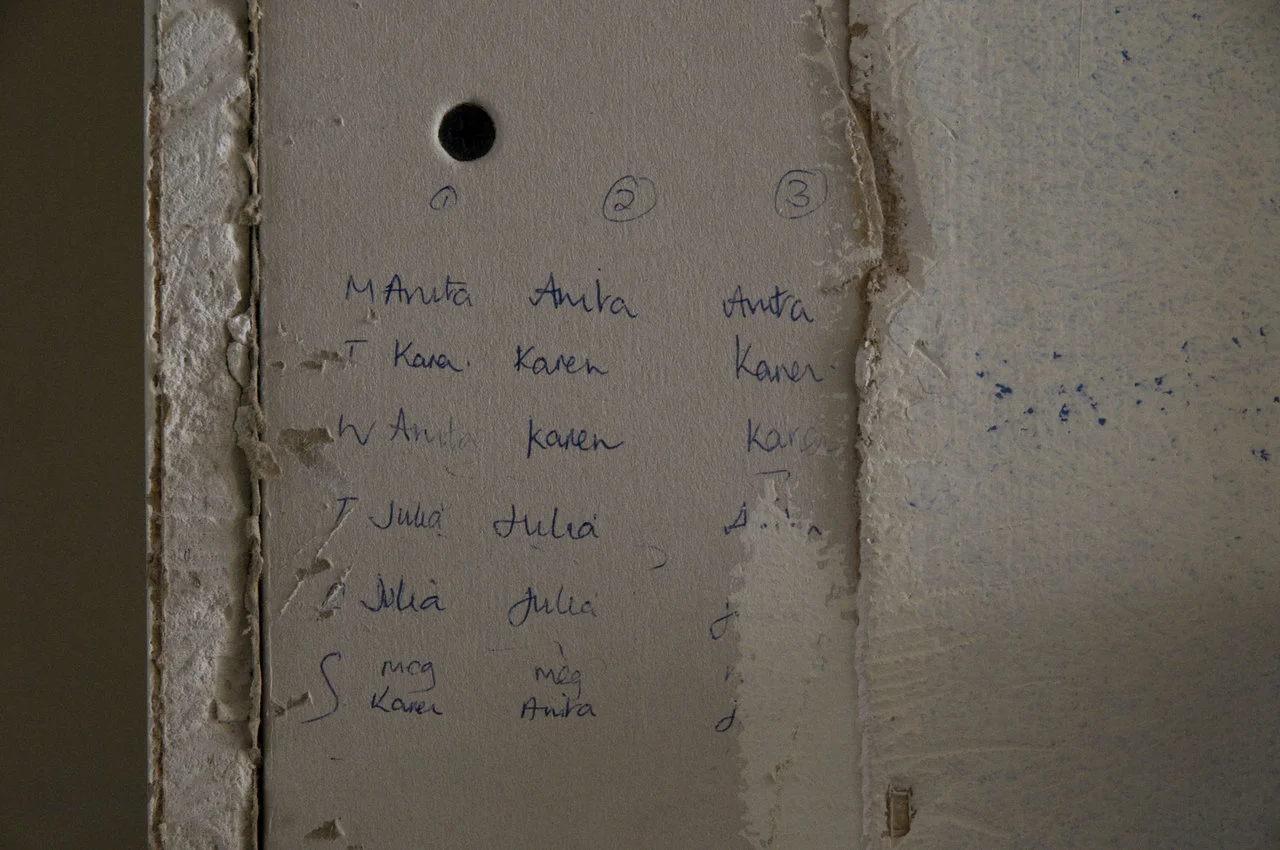 ① ② ③
M Anita Anita Anita
T Karen Karen Karen
W Anita Karen Karen
T Julia Julia
Julia Julia J
S meg meg
Karen Anita J